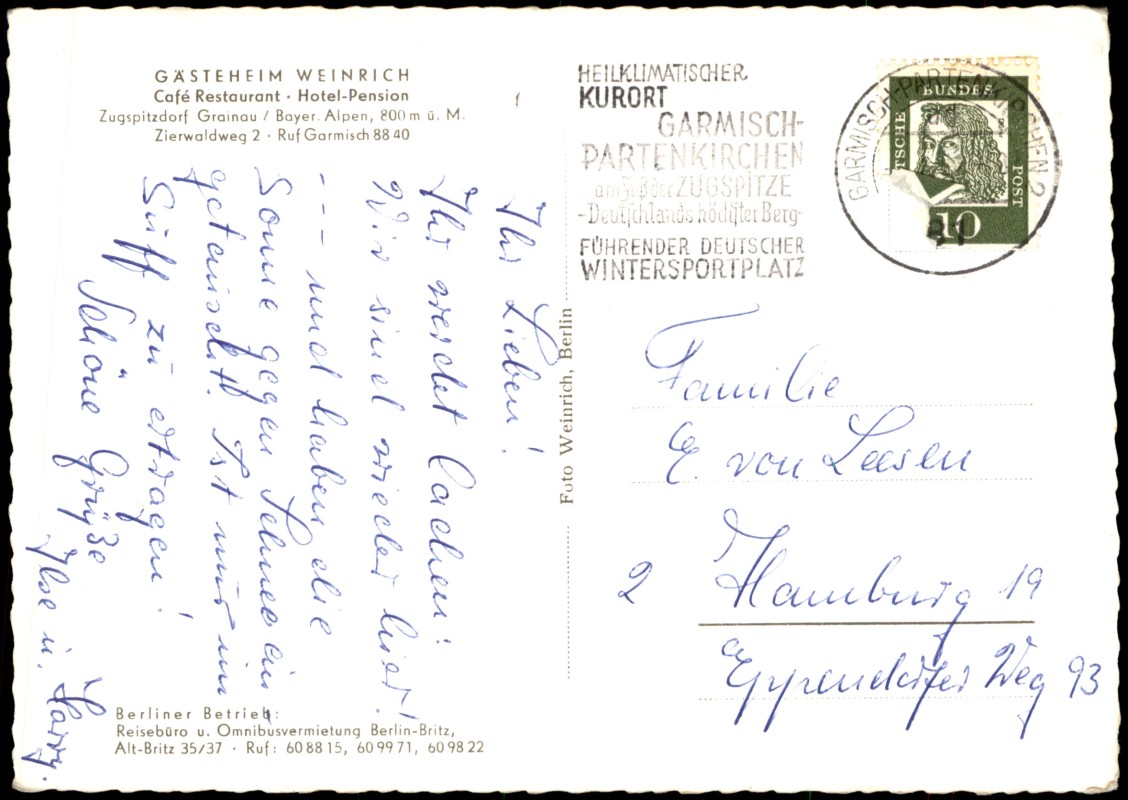 GÄSTEHEIM WEINRICH
Café Restaurant · Hotel-Pension
Zugspitzdorf Grainau / Bayer. Alpen, 800 m ü. M.
Zierwaldweg 2 · Ruf Garmisch 88 40
Ihr Lieben!
Ihr werdet lachen:
Wir sind wieder hier!
- - - und haben die
Sonne gegen Schnee ein-
getauscht. Ist nur im
Suff zu ertragen!
Schöne Grüße
Ilse u. Harry.
Berliner Betrieb:
Reisebüro u. Omnibusvermietung Berlin-Britz,
Alt-Britz 35/37 · Ruf: 60 88 15, 60 99 71, 60 98 22
Foto Weinrich, Berlin
HEILKLIMATISCHER
KURORT
GARMISCH-
PARTENKIRCHEN
am Fuß der ZUGSPITZE
-Deutschlands höchster Berg-
FÜHRENDER DEUTSCHER
WINTERSPORTPLATZ
GARMISCH-PARTENKIRCHEN 2
ad
BUNDES
POST
10
Familie
E. von Leesen
2 Hamburg 19
Eppendorfer Weg 93